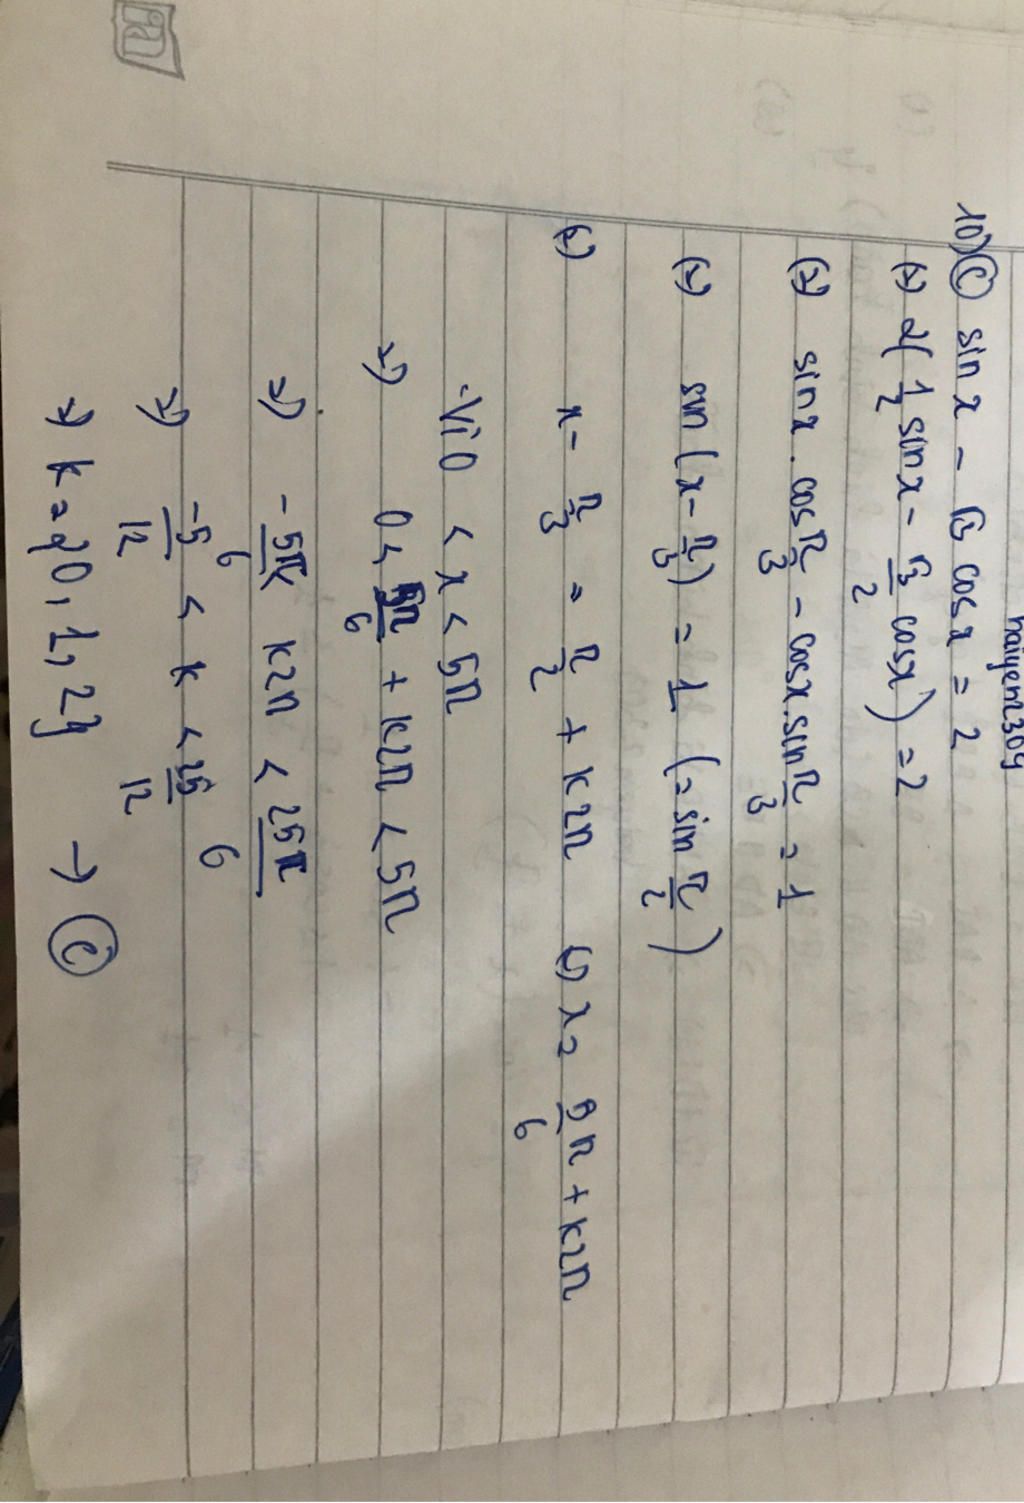 haiyem2304
10) Ⓒ sin x - √3 cos x = 2
(=) 2( 1/2 sin x - √3/2 cos x ) = 2
(=) sin x . cos π/3 - cos x . sin π/3 = 1
(=) sin ( x - π/3 ) = 1 ( = sin π/2 )
(=) x - π/3 = π/2 + k2π (=) x = 5π/6 + k2π
- Vì 0 < x < 5π
=) 0 < 5π/6 + k2π < 5π
=) -5π/6 < k2π < 25π/6
=) -5/12 < k < 25/12
=) k = {0, 1, 2} → Ⓒ